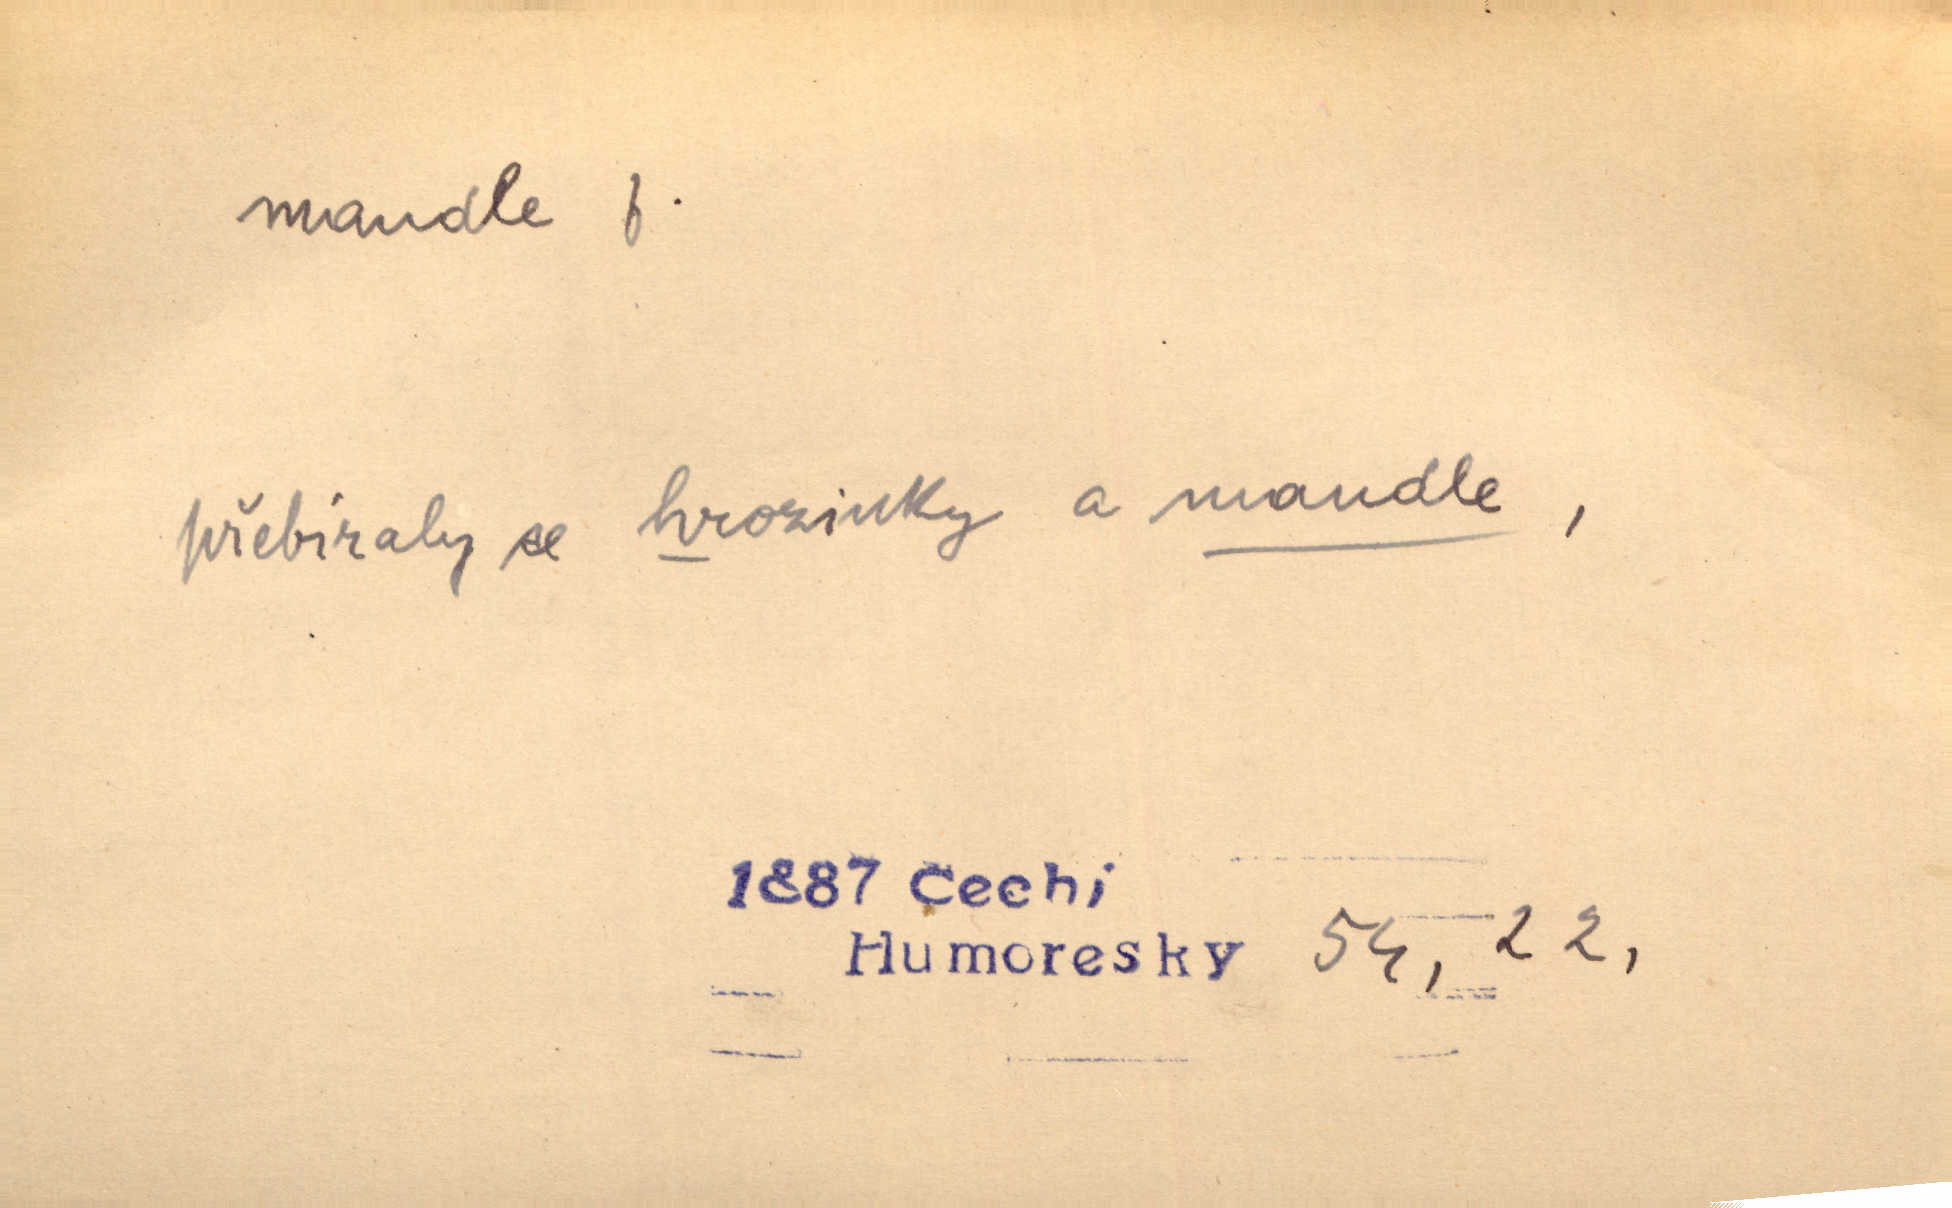 mandle f.
přebíraly se hrozinky a mandle,
1887 Čech i
Humoresky 54, 22,